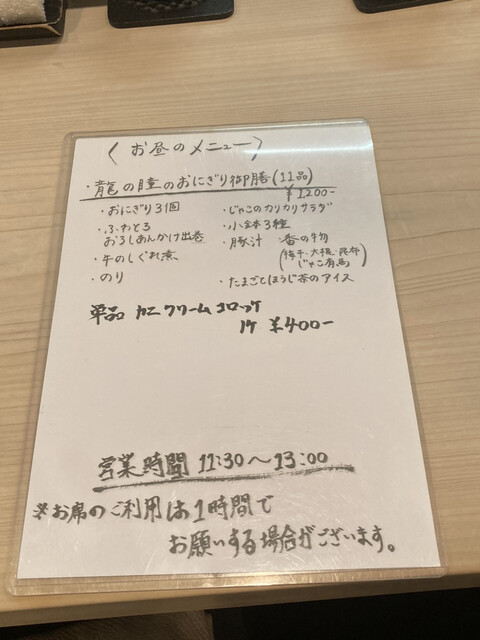 〈お昼のメニュー〉
・龍の瞳のおにぎり御膳(11品)
¥1200-
・おにぎり3個
・ふわとろ
おろしあんかけ出巻
・牛のしぐれ煮
・のり
・じゃこのカリカリサラダ
・小鉢3種
・豚汁 ・香の物
(梅干・大根・昆布
じゃこ有馬)
・たまごとほうじ茶のアイス
単品 カニクリームコロッケ
1ケ ¥400-
営業時間 11:30～13:00
※お席のご利用は1時間で
お願いする場合がございます。